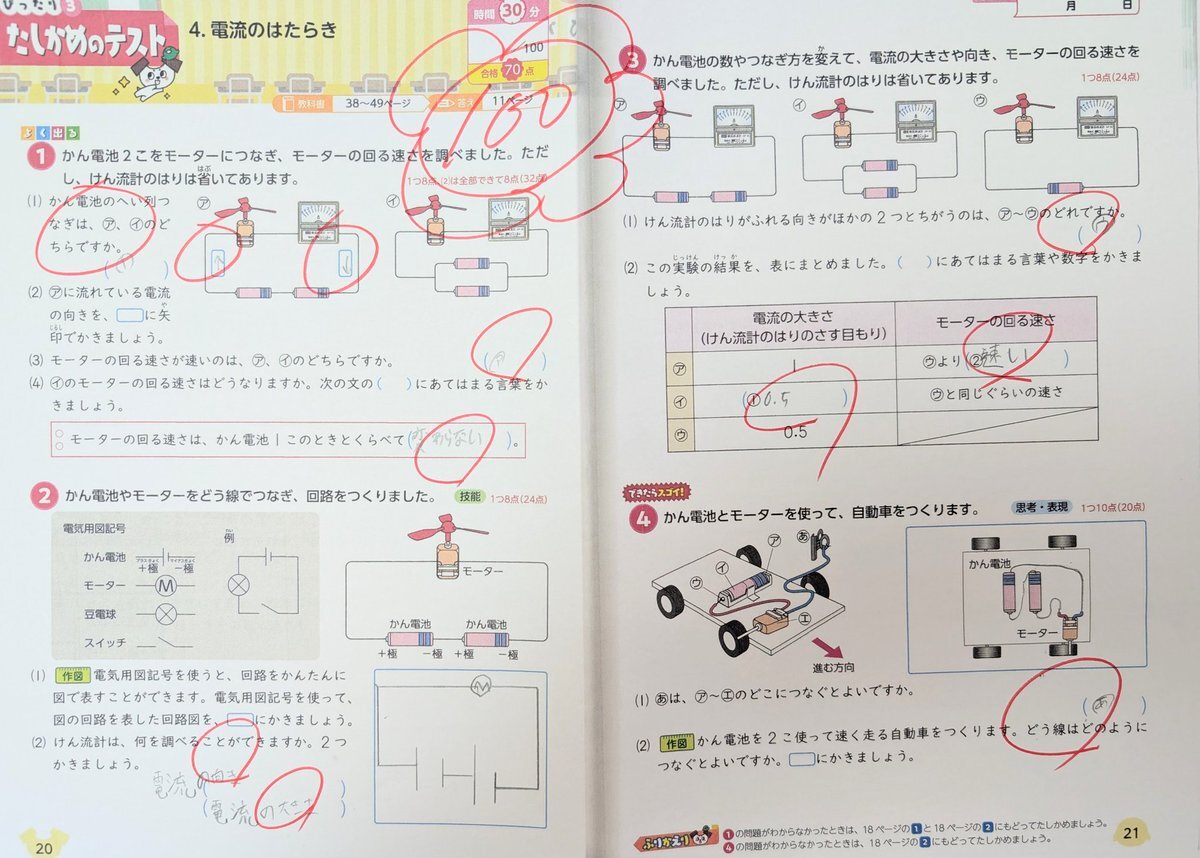 ぴったり3
たしかめのテスト
4. 電流のはたらき
時間 30 分
100
合格 70 点
100
教科書 38〜49ページ 答え 11ページ
よく出る
1 かん電池2こをモーターにつなぎ、モーターの回る速さを調べました。ただ
し、けん流計のはりは省いてあります。
1つ8点、(2)は全部できて8点(32点)
(1) かん電池のへい列つ
なぎは、㋐、㋑のど
ちらですか。
㋐
㋑
(2) ㋐に流れている電流
の向きを、に矢
印でかきましょう。
(3) モーターの回る速さが速いのは、㋐、㋑のどちらですか。
(4) ㋑のモーターの回る速さはどうなりますか。次の文の( )にあてはまる言葉をか
きましょう。
モーターの回る速さは、かん電池1このときとくらべて(変わらない)。
2 かん電池やモーターをどう線でつなぎ、回路をつくりました。
技能 1つ8点(24点)
電気用図記号
かん電池 +極 −極
モーター M
豆電球
スイッチ
例
モーター
かん電池 かん電池
+極 −極 +極 −極
(1) 作図 電気用図記号を使うと、回路をかんたんに
図で表すことができます。電気用図記号を使って、
図の回路を表した回路図を、にかきましょう。
M
(2) けん流計は、何を調べることができますか。2つ
かきましょう。
電流の向き
(電流の大きさ)
20
月 日
3 かん電池の数やつなぎ方を変えて、電流の大きさや向き、モーターの回る速さを
調べました。ただし、けん流計のはりは省いてあります。
1つ8点(24点)
㋐
㋑
㋒
(1) けん流計のはりがふれる向きがほかの2つとちがうのは、㋐〜㋒のどれですか。
(㋒)
(2) この実験の結果を、表にまとめました。( )にあてはまる言葉や数字をかきま
しょう。
電流の大きさ
(けん流計のはりのさす目もり)
モーターの回る速さ
㋐ 1 ㋒より(②速い)
㋑ (①0.5) ㋒と同じぐらいの速さ
㋒ 0.5
できたらスゴイ!
4 かん電池とモーターを使って、自動車をつくります。
思考・表現 1つ10点(20点)
㋐
㋑
㋒
㋓
あ
進む方向
かん電池
モーター
(1) あは、㋐〜㋓のどこにつなぐとよいですか。
(2) 作図 かん電池を2こ使って速く走る自動車をつくります。どう線はどのように
つなぐとよいですか。にかきましょう。
ふりかえり
1の問題がわからなかったときは、18ページの1と18ページの2にもどってたしかめましょう。
4の問題がわからなかったときは、18ページの2にもどってたしかめましょう。
21